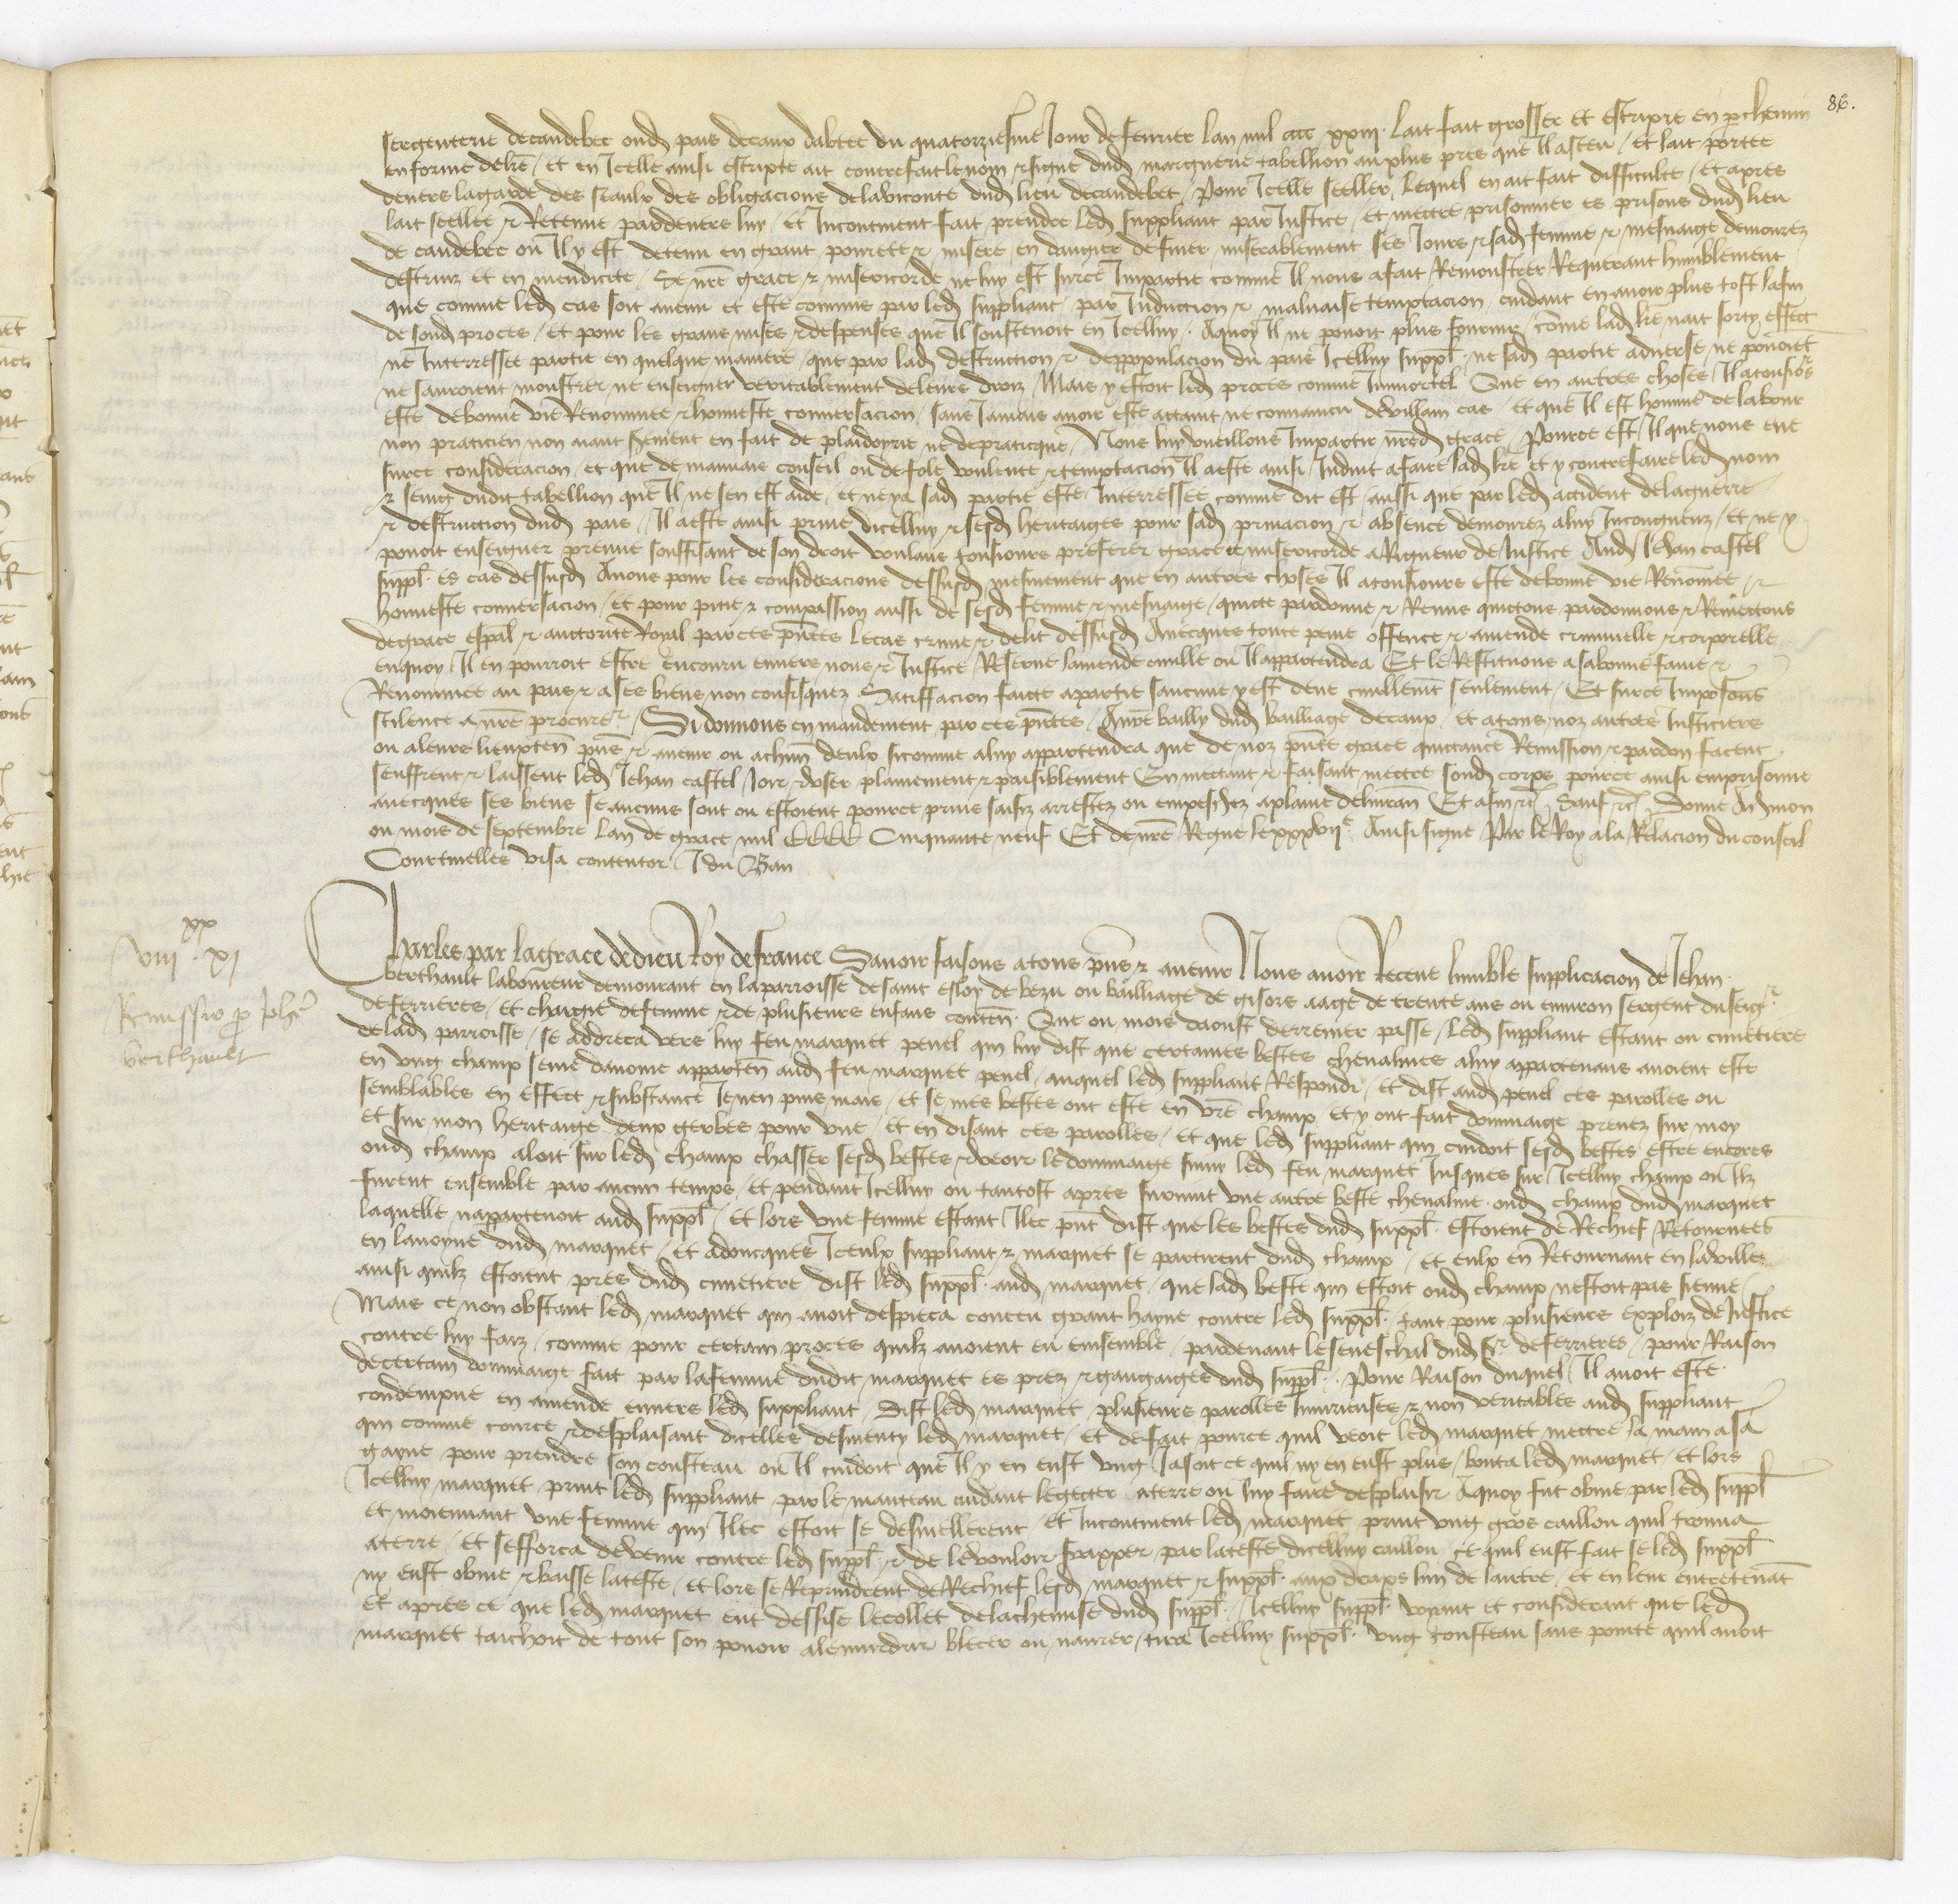 86.
sergenterie de caudebec oud pais de caux dabtee du quatorziesme Jour de feurier lan mil cccc xxiii. lait fait grosser et escripre en pchemin
en forme de lre / et en Icelle ainsi escripte ait contrefait le nom & signe dud marguerie tabellion au plus pres que Il a sceu / et lait portee
deuers la garde des seaulx des obligacions de la viconte dud lieu de caudebec / pour Icelle seeller / lequel en ait fait difficulte / et apres
lait seellee & Retenue pardeuers luy / et Incontinent fait prendre led suppliant par Justice / et mectre prisonnier es prisons dud lieu
de caudebec ou Il y est detenu en grant pourete & misere en dangier de finer miserablement ses Jours & sad femme & mesnaige demourez
destruiz et en mendicite / Se nre grace & misericorde ne luy est surce Impartie comme Il nous a fait Remonstrer Requerant humblement
que comme led cas soit auenu et este commis par led suppliant par Induction & mauuaise temptacion cuidant en auoir plus tost la fin
de soud proces / et pour les grans mises & despenses que Il soustenoit en Icelluy. A quoy Il ne pouoit plus fournir / come lad lre nait sorty effect
ne Interressee partie en quelque maniere / que par lad destruction & deppopulacion du pais Icelluy suppl. ne sad partie aduerse ne pouoiet
ne sauroient monstrer ne enseigner veritablement de leurs droiz / Mais y estoit led proces comme Immortel Que en autres choses / Il a tousiors
este de bonne vie Renommee & honneste conuersacion / sans Jamais auoir este actaint ne conuaincu de villain cas / et que Il est homme de labour
non praticien non aiant en fait de plaidoyrie ne de praticque / Nous luy vueillons Impartir nred grace / Pource est Il que nous eue
surce consideracion / et que de mauuais conseil ou de fole voulente & temptacion Il a este ainsi Induit a faire lad lre et y contrefaire led nom
& seing dudit tabellion que Il ne sen est aide / et ne y a sad partie este Interressee comme dit est / aussi que par led accident de la guerre
& destruction dud pais / Il a este ainsi priue dicelluy & sesd heritaiges pour sad priuacion & absence demourez a luy Incongneuz / et ne y
pouoit enseigner preuue souffisant de son droit voulans tousiours preferer grace & misericorde a Rigueur de Justice Aud Jehan castel
suppl. es cas dessusd Auons pour les consideracions dessusd mesmement que en autres choses Il a tousiours este de bonne vie Renomee &
honneste conuersacion / et pour pitie & compassion aussi de sesd femme & mesnaige / quicte pardonne & Remis quictons pardonnons & Remectons
de grace espal & auctorite Royal par ces pntes le cas crime & delit dessusd Auecques toute peine offence & amende criminelle & corporelle
enquoy Il en pourroit estre encouru enuers nous & Justice Reserue lamende ciuille ou Il appartendra Et le Restituons a sa bonne fame &
Renommee au pais & a ses biens non confisquez Satiffacion faicte a partie saucune y est deue ciuillemt seulement / Et surce Imposons
silence a nre procurer / Si donnons en mandement par ces pntes / A nre bailly dud bailliage de caux / et a tous noz autres Justiciers
ou a leurs lieuxten pns & auenir ou a chun deulx sicomme a luy appartendra que de noz pnte grace quictance Remission & pardon facent
seuffrent & laissent led Jehan castel Joir & vser plainement & paisiblement En mectant & faisant mectre soud corps pource ainsi emprisonne
auecques ses biens se aucuns sont ou estoient pource prins saisiz arrestez ou empeschez a plaine deliuran Et afin &c Sauf &c Donne A Chinon
ou mois de septembre lan de grace mil CCCC Cinquante neuf Et de nre Regne le xxxviie Ainsi signe Par le Roy a la Relacion du conseil
Courtinelles visa contentor J du Ban
viiixx.xi
Remissio p Johe
berthault
Charles par la grace de dieu Roy de france Sauoir faisons a tous pns & auenir Nous auoir Receue humble supplicacion de Jehan
berthault laboureur demourant en la parroisse de saint esloy de bezu ou bailliage de gisors aage de trente ans ou enuiron sergent du seigr
de ferrieres / et chargie de femme & de plusieurs enfans conten. Que ou mois daoust derrenier passe / led suppliant estant ou cimetiere
de lad parroisse / se addreca vers luy feu marquet penel qui luy dist que certaines bestes cheualines a luy appartenans auoient este
en vng champ seme dauoine apparten aud feu marquet penel / auquel led suppliant Respondi / et dist aud penel ces parolles ou
semblables en effect & substance Je nen puis mais / et se mes bestes ont este en vre champ / et y ont fait dommaige prenez sur moy
et sur mon heritaige deux gerbes pour vne / et en disant ces parolles / et que led suppliant qui cuidoit sesd bestes estre encores
oud champ aloit sur led champ chasser sesd bestes & veoir le dommaige suiuy led feu marquet Jusques sur Icelluy champ ou Ilz
furent ensemble par aucun temps / et pendant Icelluy ou tantost apres suruint vne autre beste cheualine oud champ dud marquet
laquelle nappartenoit aud suppl. / et lors vne femme estant Ilec pnt dist que les bestes dud suppl. estoient de Rechief Retournees
en lauoyne dud marquet / et adoncques Iceulx suppliant & marquet se partirent dud champ / et eulx en Retournant en la ville
ainsi quilz estoient pres dud cimetiere dist led suppl. aud marquet / que lad beste qui estoit oud champ nestoit pas sienne /
Mais ce non obstant led marquet qui auoit despieca conceu grant hayne contre led suppl. / tant pour plusieurs exploiz de Justice
contre luy faiz / comme pour certain proces quilz auoient eu ensemble / pardeuant le seneschal dud sr de ferrieres / pour Raison
de certain dommaige fait par la femme dudit marquet es prez & gaugaiges dud suppl. Pour Raison duquel Il auoit este
condempne en amende enuers led suppliant / Dist led marquet plusieurs parolles Iniurieuses & non veritables aud suppliant
qui comme cource & desplaisant dicelles desmenty led marquet / et de fait pource quil veoit led marquet mectre la main a sa
gayne pour prendre son cousteau ou Il cuidoit que Il y en eust vng Jasoit ce quil ny en eust plus / bouta led marquet / et lors
Icelluy marquet print led suppliant par le manteau cuidant le gecter a terre ou luy faire desplaisir A quoy fut obuie par led suppl
et moiennant vne femme qui Ilec estoit se desmellerent / et Incontinent led marquet print vng gros caillou quil trouua
a terre / et sefforca de venir contre led suppl. & de le vouloir frapper par la teste dicelluy caillou / ce quil eust fait se led suppl
ny eust obuie & baisse la teste / et lors se Reprindrent de Rechief lesd marquet & suppl. aux draps lun de lautre / et en leur entretenat
et apres ce que led marquet eut dessise le collet de la chemise dud suppl. / Icelluy suppl. voyant et considerant que led
marquet taichoit de tout son pouoir a le murdrir blecer ou naurer / tira Icelluy suppl. vng cousteau sans pointe quil auoit